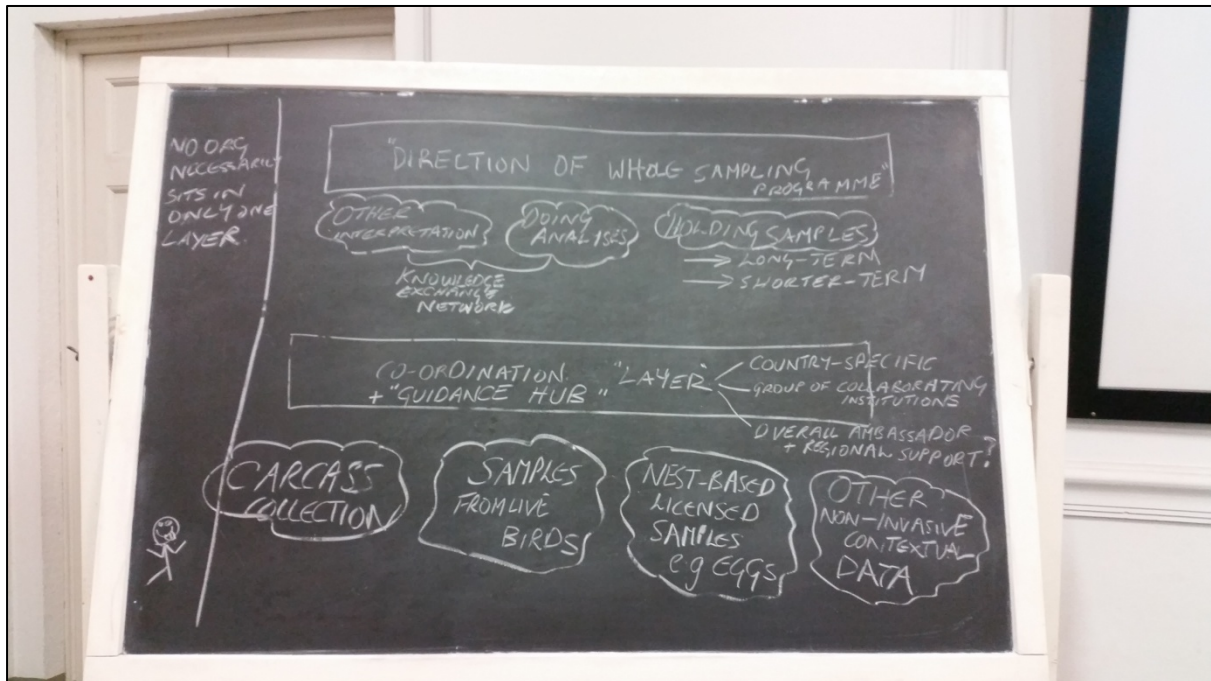 NO ORG
NECESSARILY
SITS IN
ONLY ONE
LAYER.
"DIRECTION OF WHOLE SAMPLING
PROGRAMME"
OTHER
INTERPRETATION
DOING
ANALYSES
KNOWLEDGE
EXCHANGE
NETWORK
HOLDING SAMPLES
→ LONG-TERM
→ SHORTER-TERM
CO-ORDINATION
+ "GUIDANCE HUB"
"LAYER"
COUNTRY-SPECIFIC
GROUP OF COLLABORATING
INSTITUTIONS
OVERALL AMBASSADOR
+ REGIONAL SUPPORT?
CARCASS
COLLECTION
SAMPLES
FROM LIVE
BIRDS
NEST-BASED
LICENSED
SAMPLES
e.g EGGS
OTHER
NON-INVASIVE
CONTEXTUAL
DATA